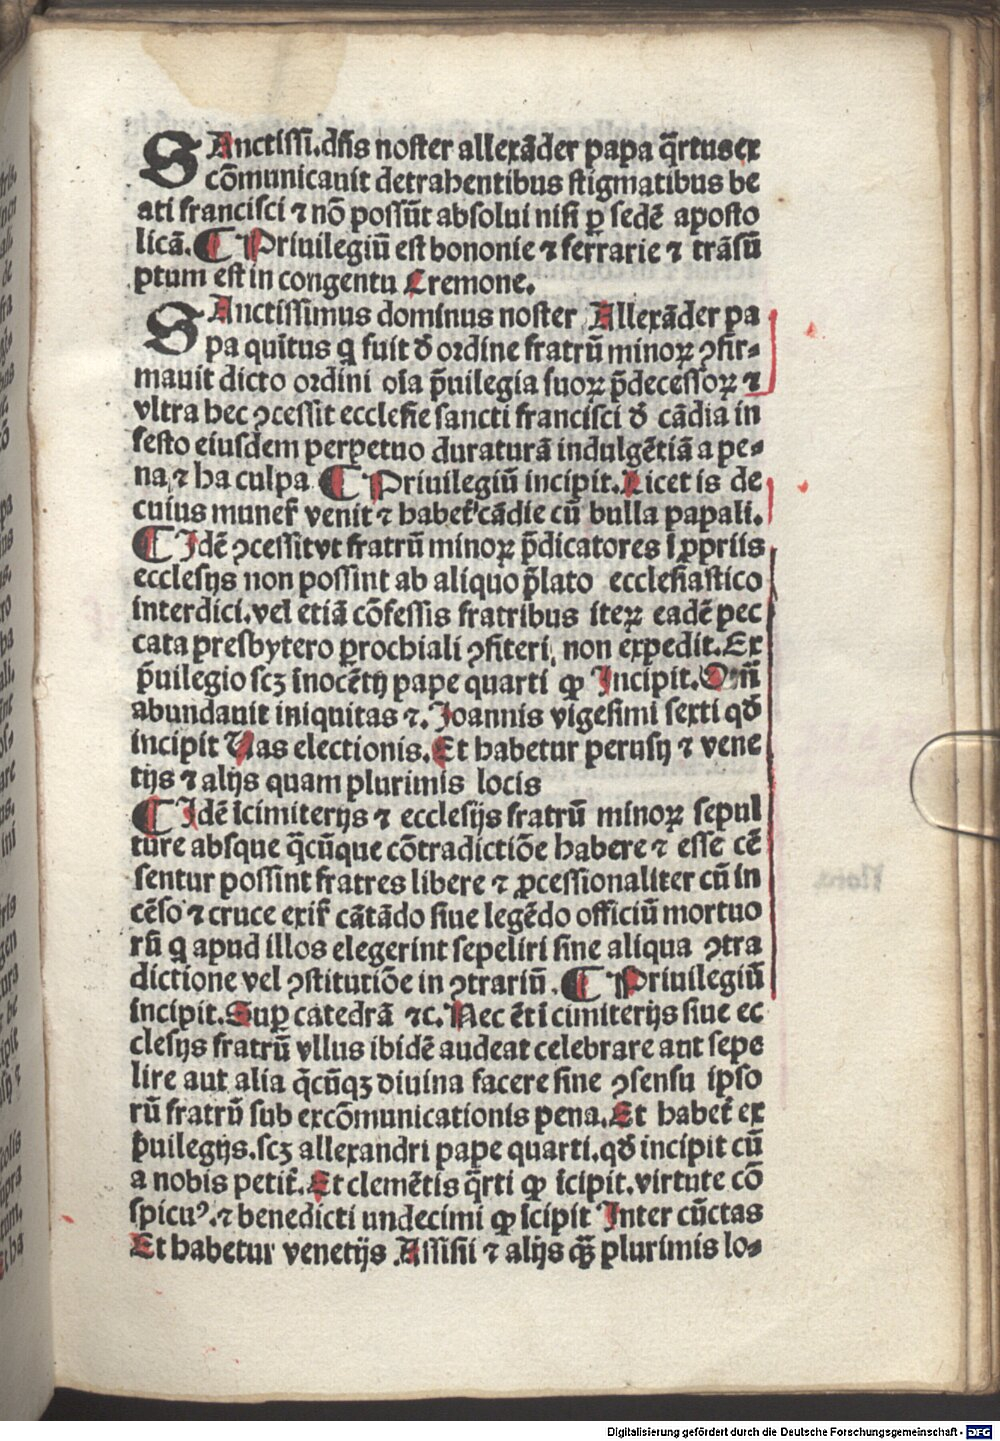 SAnctissi. dn̄s noster allexāder papa q̄rtus ex
cōmunicauit detrahentibus stigmatibus be
ati francisci ⁊ nō possūt absolui nisi ꝑ sedē aposto
licā. ¶ Priuilegiū est bononie ⁊ ferrarie ⁊ trāsū
ptum est in congentu Cremone.
SAnctissimus dominus noster Allexāder pa
pa quītus q̄ fuit ð ordine fratrū minoꝝ ꝯfir⸗
mauit dicto ordini oīa p̄uilegia suoꝝ p̄decessoꝝ ⁊
vltra hec ꝯcessit ecclesie sancti francisci ð cādia in
festo eiusdem perpetuo duraturā indulgētiā a pe⸗
na, ⁊ ha culpa ¶ Priuilegiū incipit. Licet is de
cuius muner̄ venit ⁊ habet᷑ cādie cū bulla papali.
¶ Idē ꝯcessit vt fratrū minoꝝ p̄dicatores ī ꝓpriis
ecclesijs non possint ab aliquo p̄lato ecclesiastico
interdici. vel etiā cōfessis fratribus iteꝝ eadē pec
cata presbytero ꝑrochiali ꝯfiteri, non expedit. Ex
p̄uilegio scꝫ īnocētij pape quarti qđ Incipit. Qm̄
abundauit iniquitas ⁊. Joannis vigesimi sexti qð
incipit Vas electionis. Et habetur perusij ⁊ vene
tijs ⁊ alijs quam plurimis locis
¶ Idē ī cimiterijs ⁊ ecclesijs fratrū minoꝝ sepul
ture absque q̄cūque cōtradictiōe habere ⁊ esse cē
sentur possint fratres libere ⁊ ꝓcessionaliter cū in
cēso ⁊ cruce exir̄ cātādo siue legēdo officiū mortuo
rū q̄ apud illos elegerint sepeliri sine aliqua ꝯtra
dictione vel ꝯstitutiōe in ꝯtrariū. ¶ Priuilegiū
incipit. Suꝑ catedrā ⁊c. Nec ēt ī cimiterijs siue ec
clesijs fratrū vllus ibidē audeat celebrare aut sepe
lire aut alia q̄cūqꝫ diuina facere sine ꝯsensu ipso
rū fratrū sub excōmunicationis pena. Et habet᷑ ex
p̄uilegijs. scꝫ allexandri pape quarti. qð incipit cū
a nobis petit᷑. Et clemētis q̄rti qđ īcipit. virtute cō
spicuꝰ. ⁊ benedicti undecimi qđ īcipit Inter cūctas
Et habetur venetijs Assisii ⁊ alijs qȝ̄ plurimis lo⸗
Digitalisierung gefördert durch die Deutsche Forschungsgemeinschaft - DFG